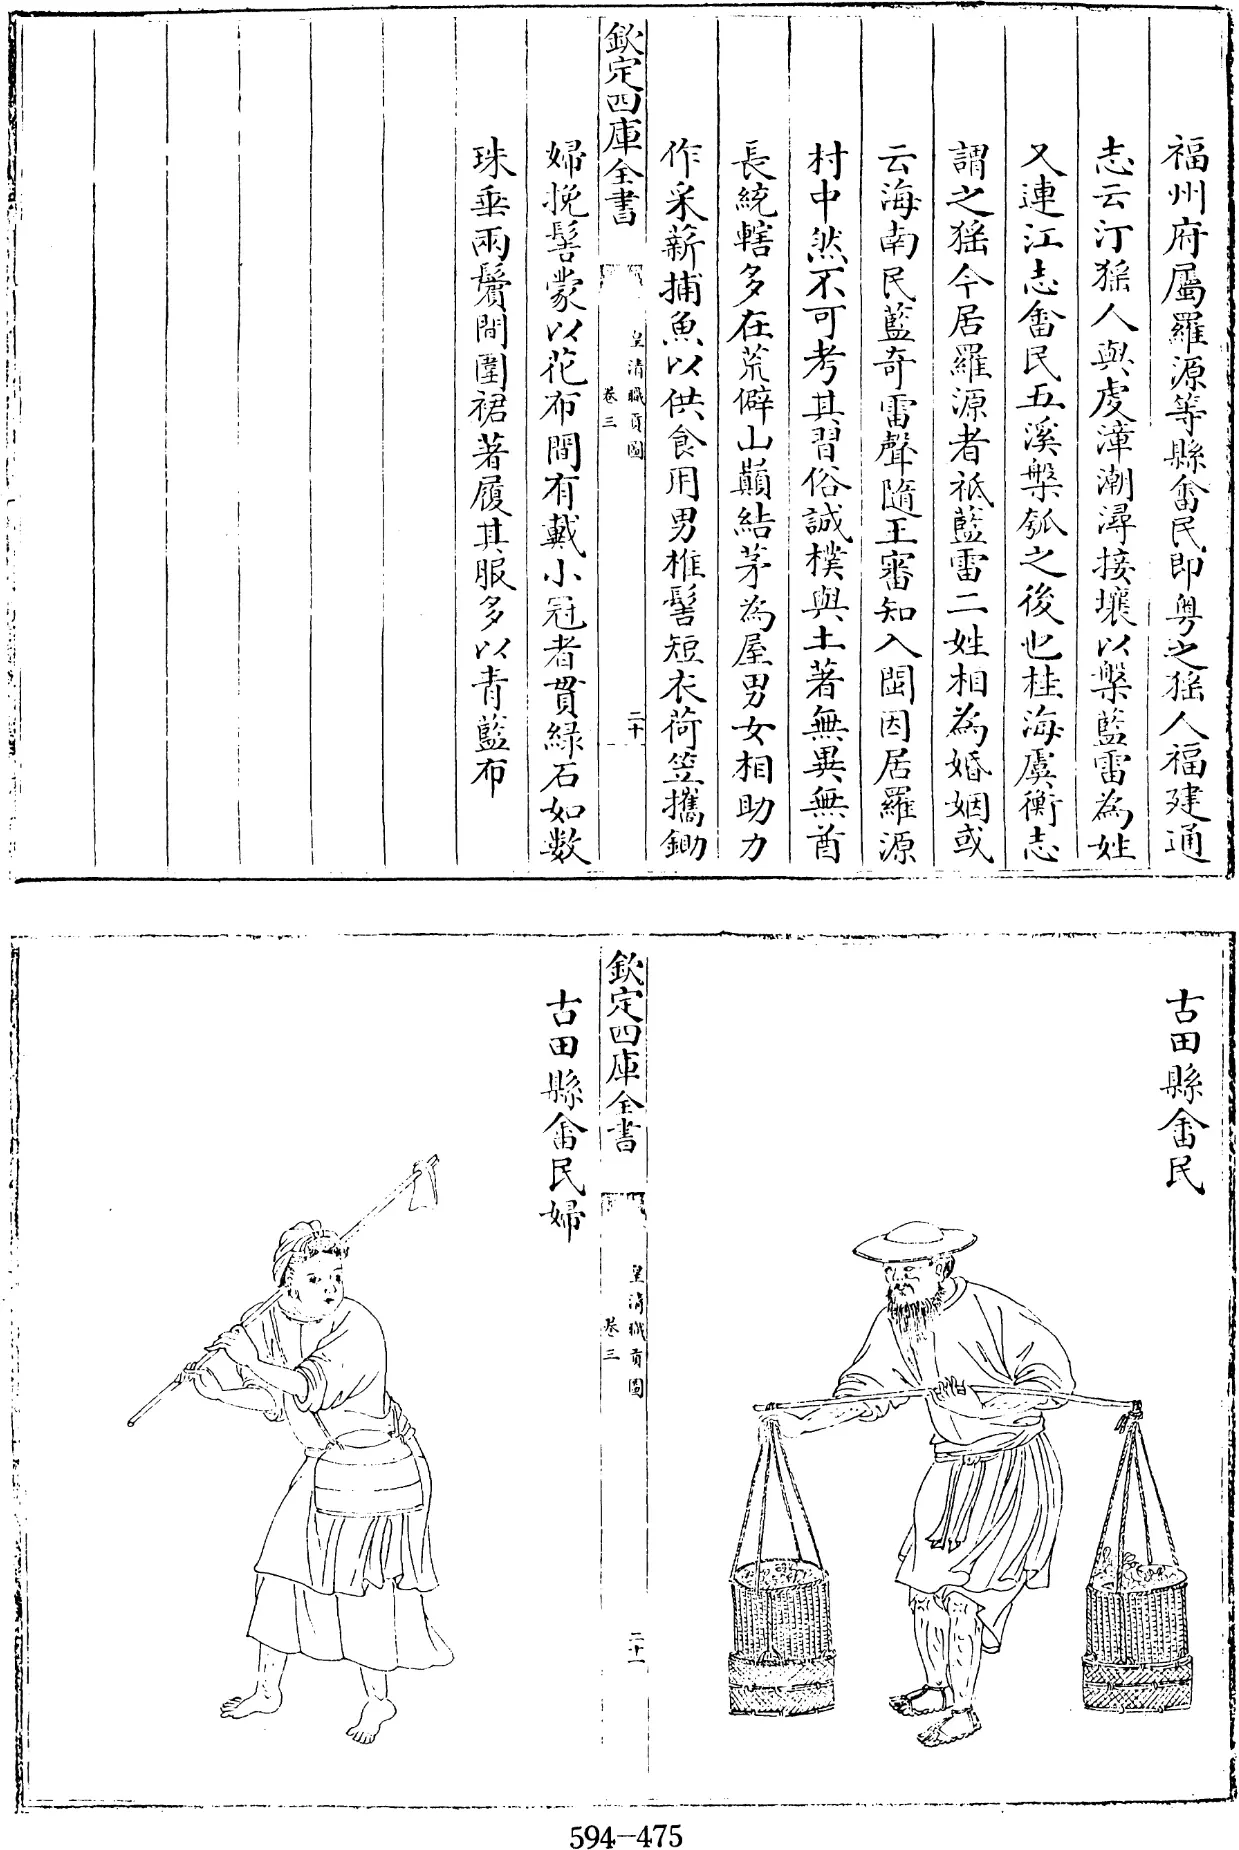 福州府屬羅源等縣畬民即粵之猺人福建通
志云汀猺人與虔漳潮潯接壤以槃藍雷為姓
又連江志畬民五溪槃瓠之後也桂海虞衡志
謂之猺今居羅源者祗藍雷二姓相為婚姻或
云海南民藍奇雷聲隨王審知入閩因居羅源
村中然不可考其習俗誠樸與土著無異無酋
長統轄多在荒僻山巔結茅為屋男女相助力
作采薪捕魚以供食用男椎髻短衣荷笠攜鋤
欽定四庫全書
皇清職貢圖
卷三
二十
婦挽髻蒙以花布間有戴小冠者貫綠石如數
珠垂兩鬢間圍裙著履其服多以青藍布
古田縣畬民
欽定四庫全書
皇清職貢圖
卷三
二十一
古田縣畬民婦
594-475